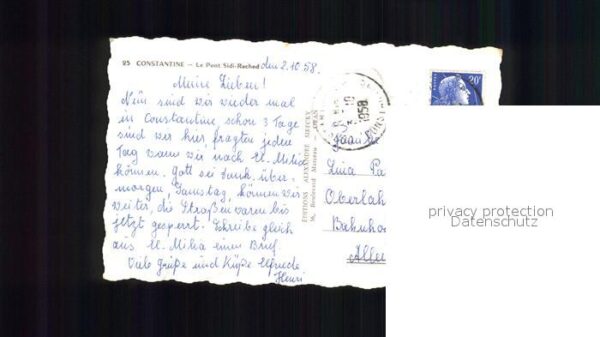 25 CONSTANTINE - Le Pont Sidi-Rached
den 2.10.58.
Meine Lieben!
Nun sind wir wieder mal
in Constantine, schon 3 Tage
sind wir hier, fragten jeden
Tag wann wir nach El-Milia
können. Gott sei Dank über-
morgen, Samstag, können wir
weiter, die Straßen waren bis
jetzt gesperrt. Schreibe gleich
aus El-Milia einen Brief.
Viele Grüße und Küße Elfriede
Henri
EDITIONS ALEXANDRE
1958
20F
Familie
Oberlah
Bahnho
Alle
privacy protection
Datenschutz